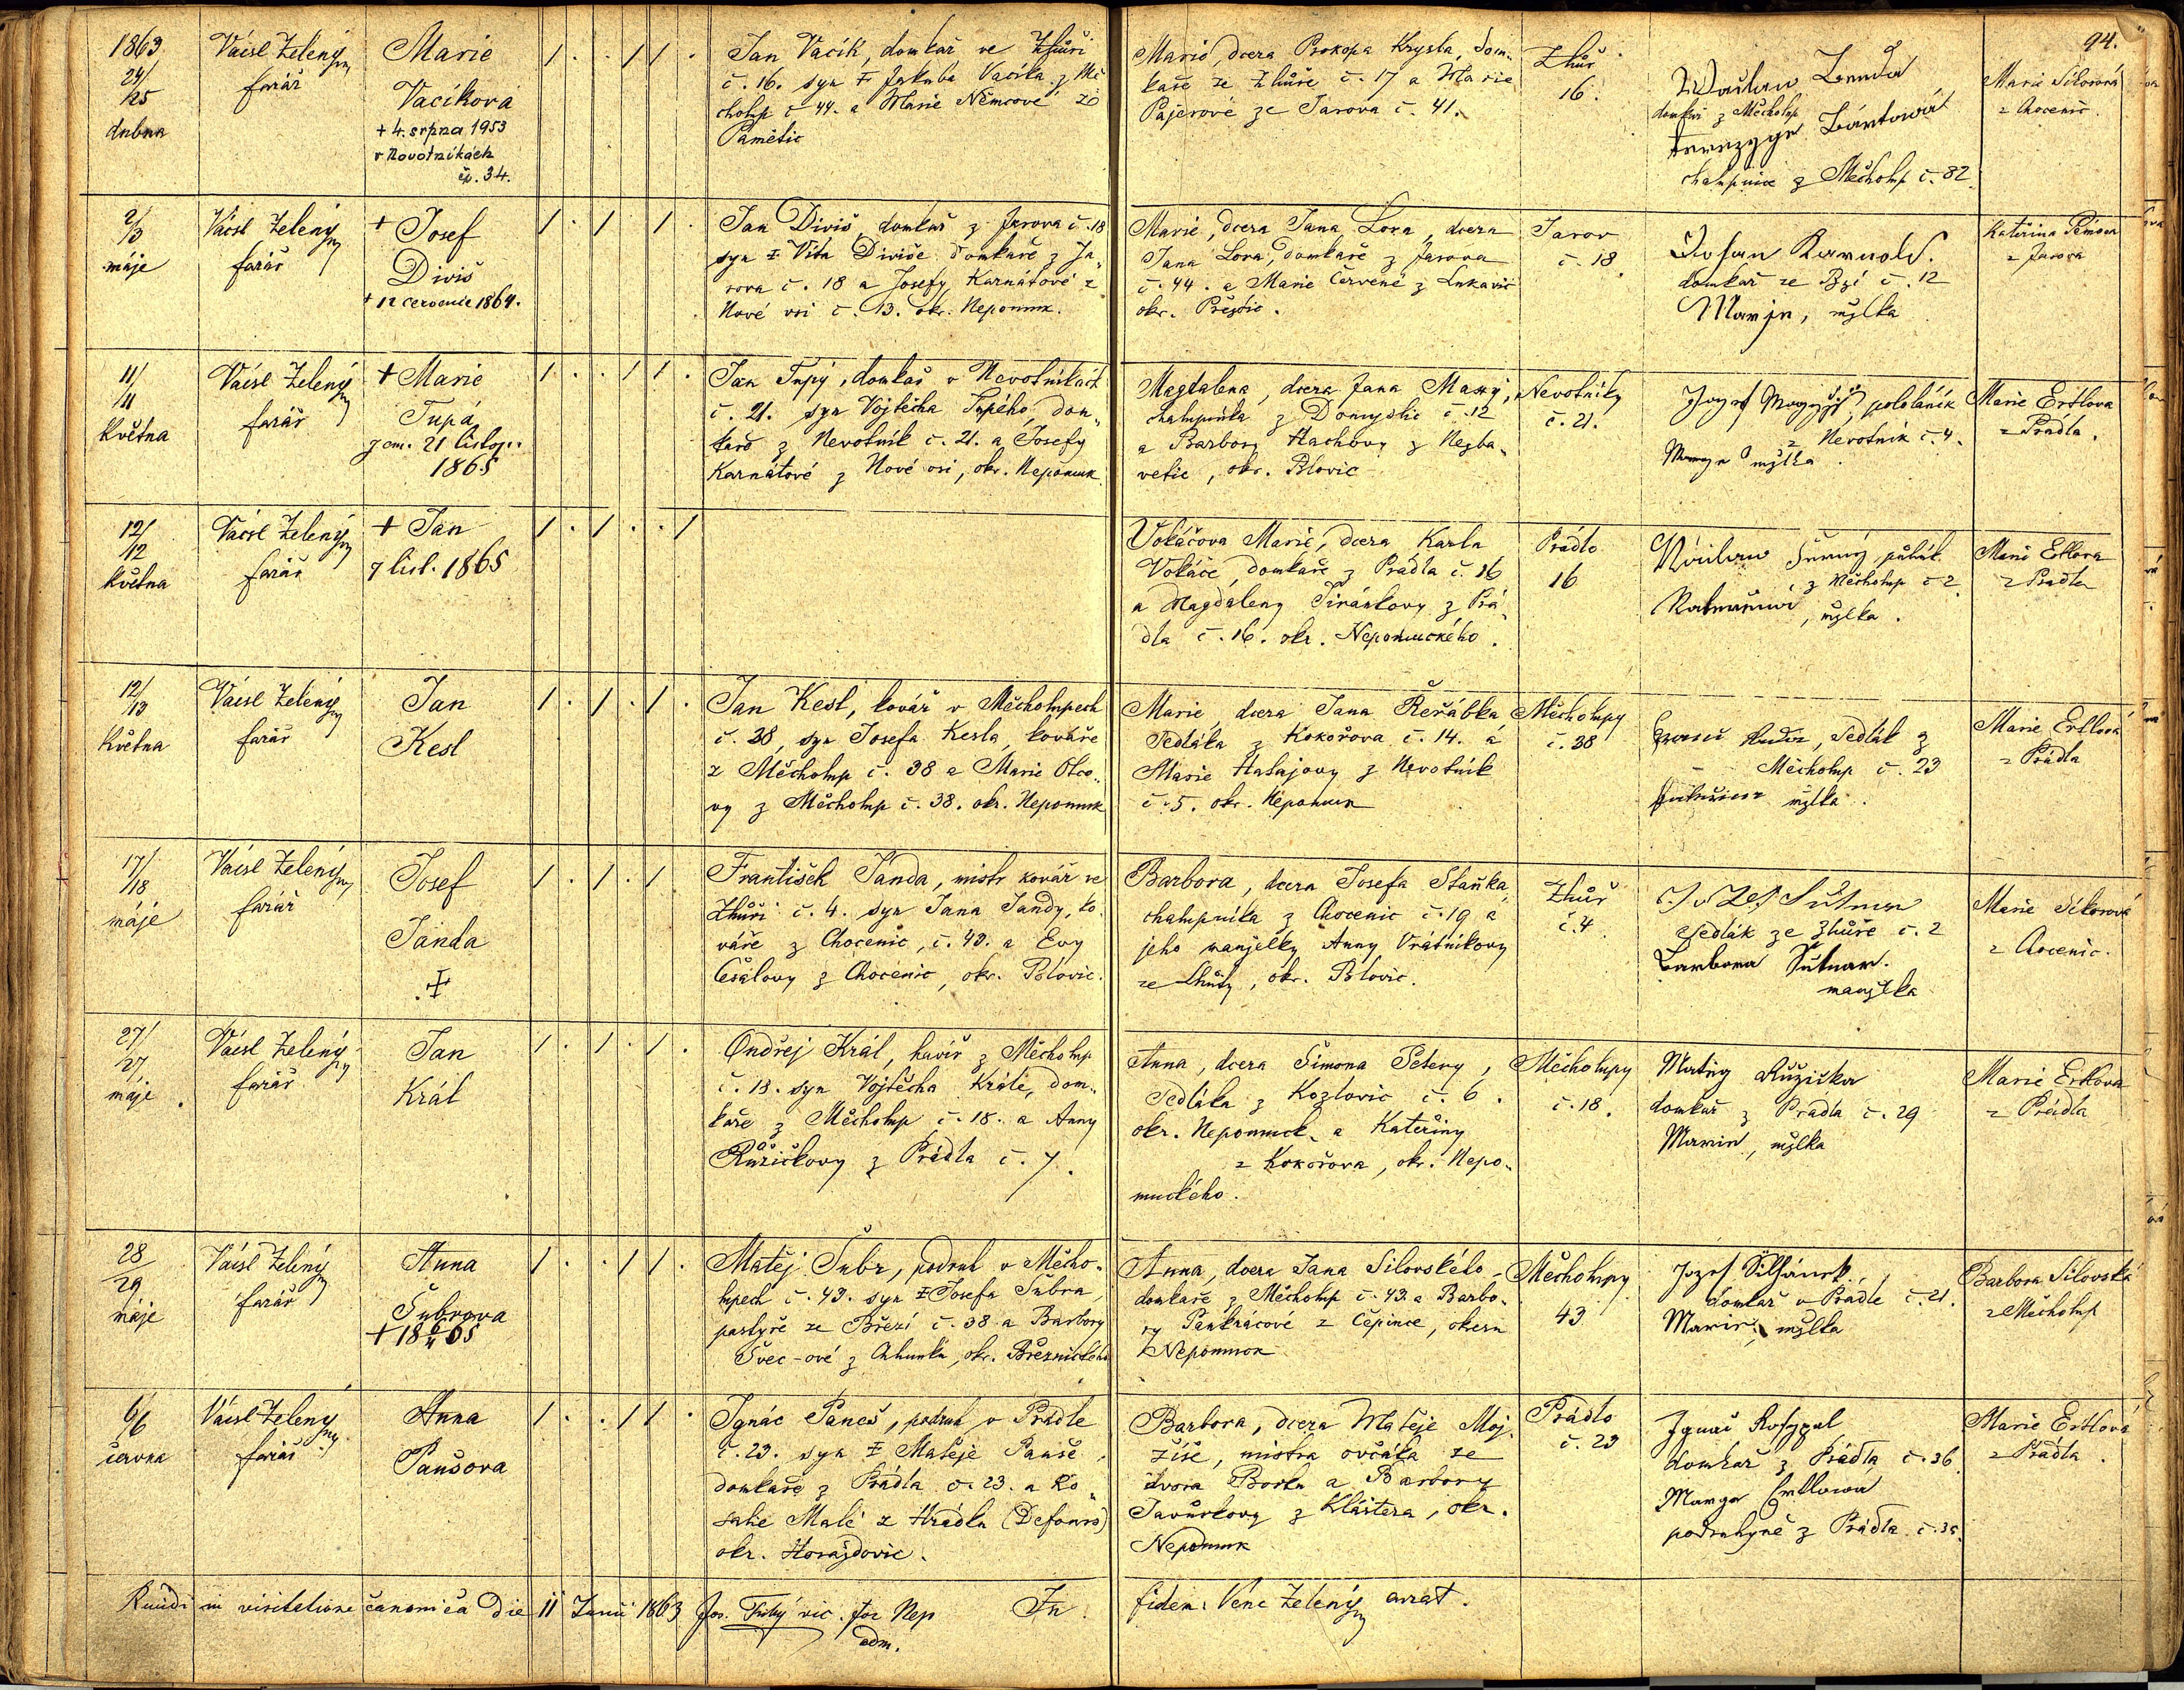 94.
1863
24/
/25
dubna
Václ Zelený
farář
Marie
Vacíková
+ 4. srpna 1953
v Novotníkách
čp. 34.
1 . . 1 1 .
Jan Vacík, domkař ve Zhůři
č. 16. syn Jakuba Vacíka z Mě
cholup č 44. a Marie Němcové ze
Pamětic
Marie, dcera Prokopa Krysla, dom-
kaře ze Zhůře č. 17 a Marie
Pajerové ze Jarova č. 41.
Zhůř
16.
domkař z Měcholup
chalupnice z Měcholup č. 82.
Marie Sikorová
z Chocenic.
2/
/3
máje
Václ Zelený
farář
+ Josef
Diviš
+ 12 července 1864.
1 . 1 . 1 .
Jan Diviš, domkař z Jarova č. 18
syn Víta Diviše domkaře z Ja„
rova č. 18 a Josefy Karnátové z
Nové vsi č. 13. okr. Nepomuk.
Marie, dcera Jana Lora, dcera
Jana Lora, domkaře z Jarova
č. 44. a Marie Červené z Lukavic
okr. Přeštic.
Jarov
č. 18.
domkař ze Bzí č. 12
mžlka
Kateřina
z Jarova
11/
/11
Května
Václ Zelený
farář
+ Marie
Tupá
zem. 21 listop.
1865
1 . . 1 1 .
Jan Tupý, domkař v Nevotníkách
č. 21. syn Vojtěcha Tupého, dom„
kaře z Nevotník č. 21. a Josefy
Karnátové z Nové vsi, okr. Nepomuk
Magdalena, dcera Jana
chalupníka z Domyslic č. 12
a Barbory Hachovy z Nezba„
vetic, okr. Blovic
Nevotníky
č. 21.
pololáník
z Nevotník č. 4.
mžlka.
Marie Ertlova
z Prádla.
12/
/12
Května
Václ Zelený
farář
+ Jan
7 list. 1865
1 . 1 . . 1
Vokáčova Marie, dcera Karla
Vokáče, domkaře z Prádla č. 16
a Magdaleny z Prá„
dla č. 16. okr. Nepomuckého.
Prádlo
16
z Měcholup č 2
mžlka.
Marie Ertlova
z Prádla
12/
/13
Května
Václ Zelený
farář
Jan
Kesl
1 . 1 . 1 .
Jan Kesl, kovář v Měcholupech
č. 38, syn Josefa Kesla, kováře
z Měcholup č. 38 a Marie Otco„
vy z Měcholup č. 38. okr. Nepomuk
Marie, dcera Jana Řeřábka
Sedláka z Kokořova č. 14. a
Marie Hatajovy z Nevotník
č. 5. okr. Nepomuk
Měcholupy
č. 38
Sedlák z
Měcholup č. 23
mžlka.
Marie Ertlová
z Prádla
17/
/18
máje
Václ Zelený
farář
Josef
Janda
1 . 1 . 1 .
František Janda, mistr kovář ve
Zhůři č. 4. syn Jana Jandy, ko
váře z Chocenic, č. 43. a Evy
Čašalovy z Chocenic, okr. Blovic.
Barbora, dcera Josefa Staňka,
chalupníka z Chocenic č. 19 a
jeho manželky Anny Vrátníkovy
ze Lhůty, okr. Blovic.
Zhůř
č. 4
Sutnar
Sedlák ze Zhůře č. 2
Barbora Sutnar.
manžlka
Marie Sikorová
z Chocenic.
27/
/27
máje.
Václ Zelený
farář
Jan
Král
1 . 1 . 1 .
Ondřej Král, havíř z Měcholup
č. 18. syn Vojtěcha Krále, dom„
kaře z Měcholup č. 18. a Anny
Růžičkovy z Prádla č. 7.
Anna, dcera Šimona Petery,
Sedláka z Kozlovic č. 6.
okr. Nepomuck. a Kateřiny
z Kokořova, okr. Nepo„
muckého.
Měcholupy
č. 18.
Matěj Růžička
domkař z Prádla č. 29
Marie, mžlka
Marie Ertlova
z Prádla
28
29
máje
Václ Zelený
farář
Anna
Šubrova
1 . . 1 1 .
Matěj Šubr, podruh v Měcho„
lupech č. 43. syn Josefa Šubra,
pastýře ze Březí č. 38 a Barbory
Švec-ové z okr. Březnického
Anna, dcera Jana Silovského
domkaře z Měcholup č. 43. a Barbo„
ry Pankrácové z Čepince, okresu
Nepomuk
Měcholupy
43
Jozef
domkař v Prádle č. 21.
Marie, mžlka
Barbora Silovská
z Měcholup
6/6
června
Václ Zelený
farář
Anna
Panšova
1 . . 1 1 .
Ignác Paneš, podruh v Prádle
č. 23. syn Matěje Panše,
domkaře z Prádla č. 23. a Ro„
salie Malé z Hrádku (Defours)
okr. Horažďovic.
Barbora, dcera Matěje Moj„
žíše, mistra ovčáka ze
dvora Borku a Barbory
Javůrkovy z Kláštera, okr.
Nepomuk
Prádlo
č. 23
Ignac Rosypal
domkař z Prádla č. 36.
Ertlowa
podruhyně z Prádla č. 35.
Marie Ertlová
z Prádla.
in visitatione canonica die 11 Junii 1863 Jos. vic. for Nep
adm.
In fidem Venc Zelený